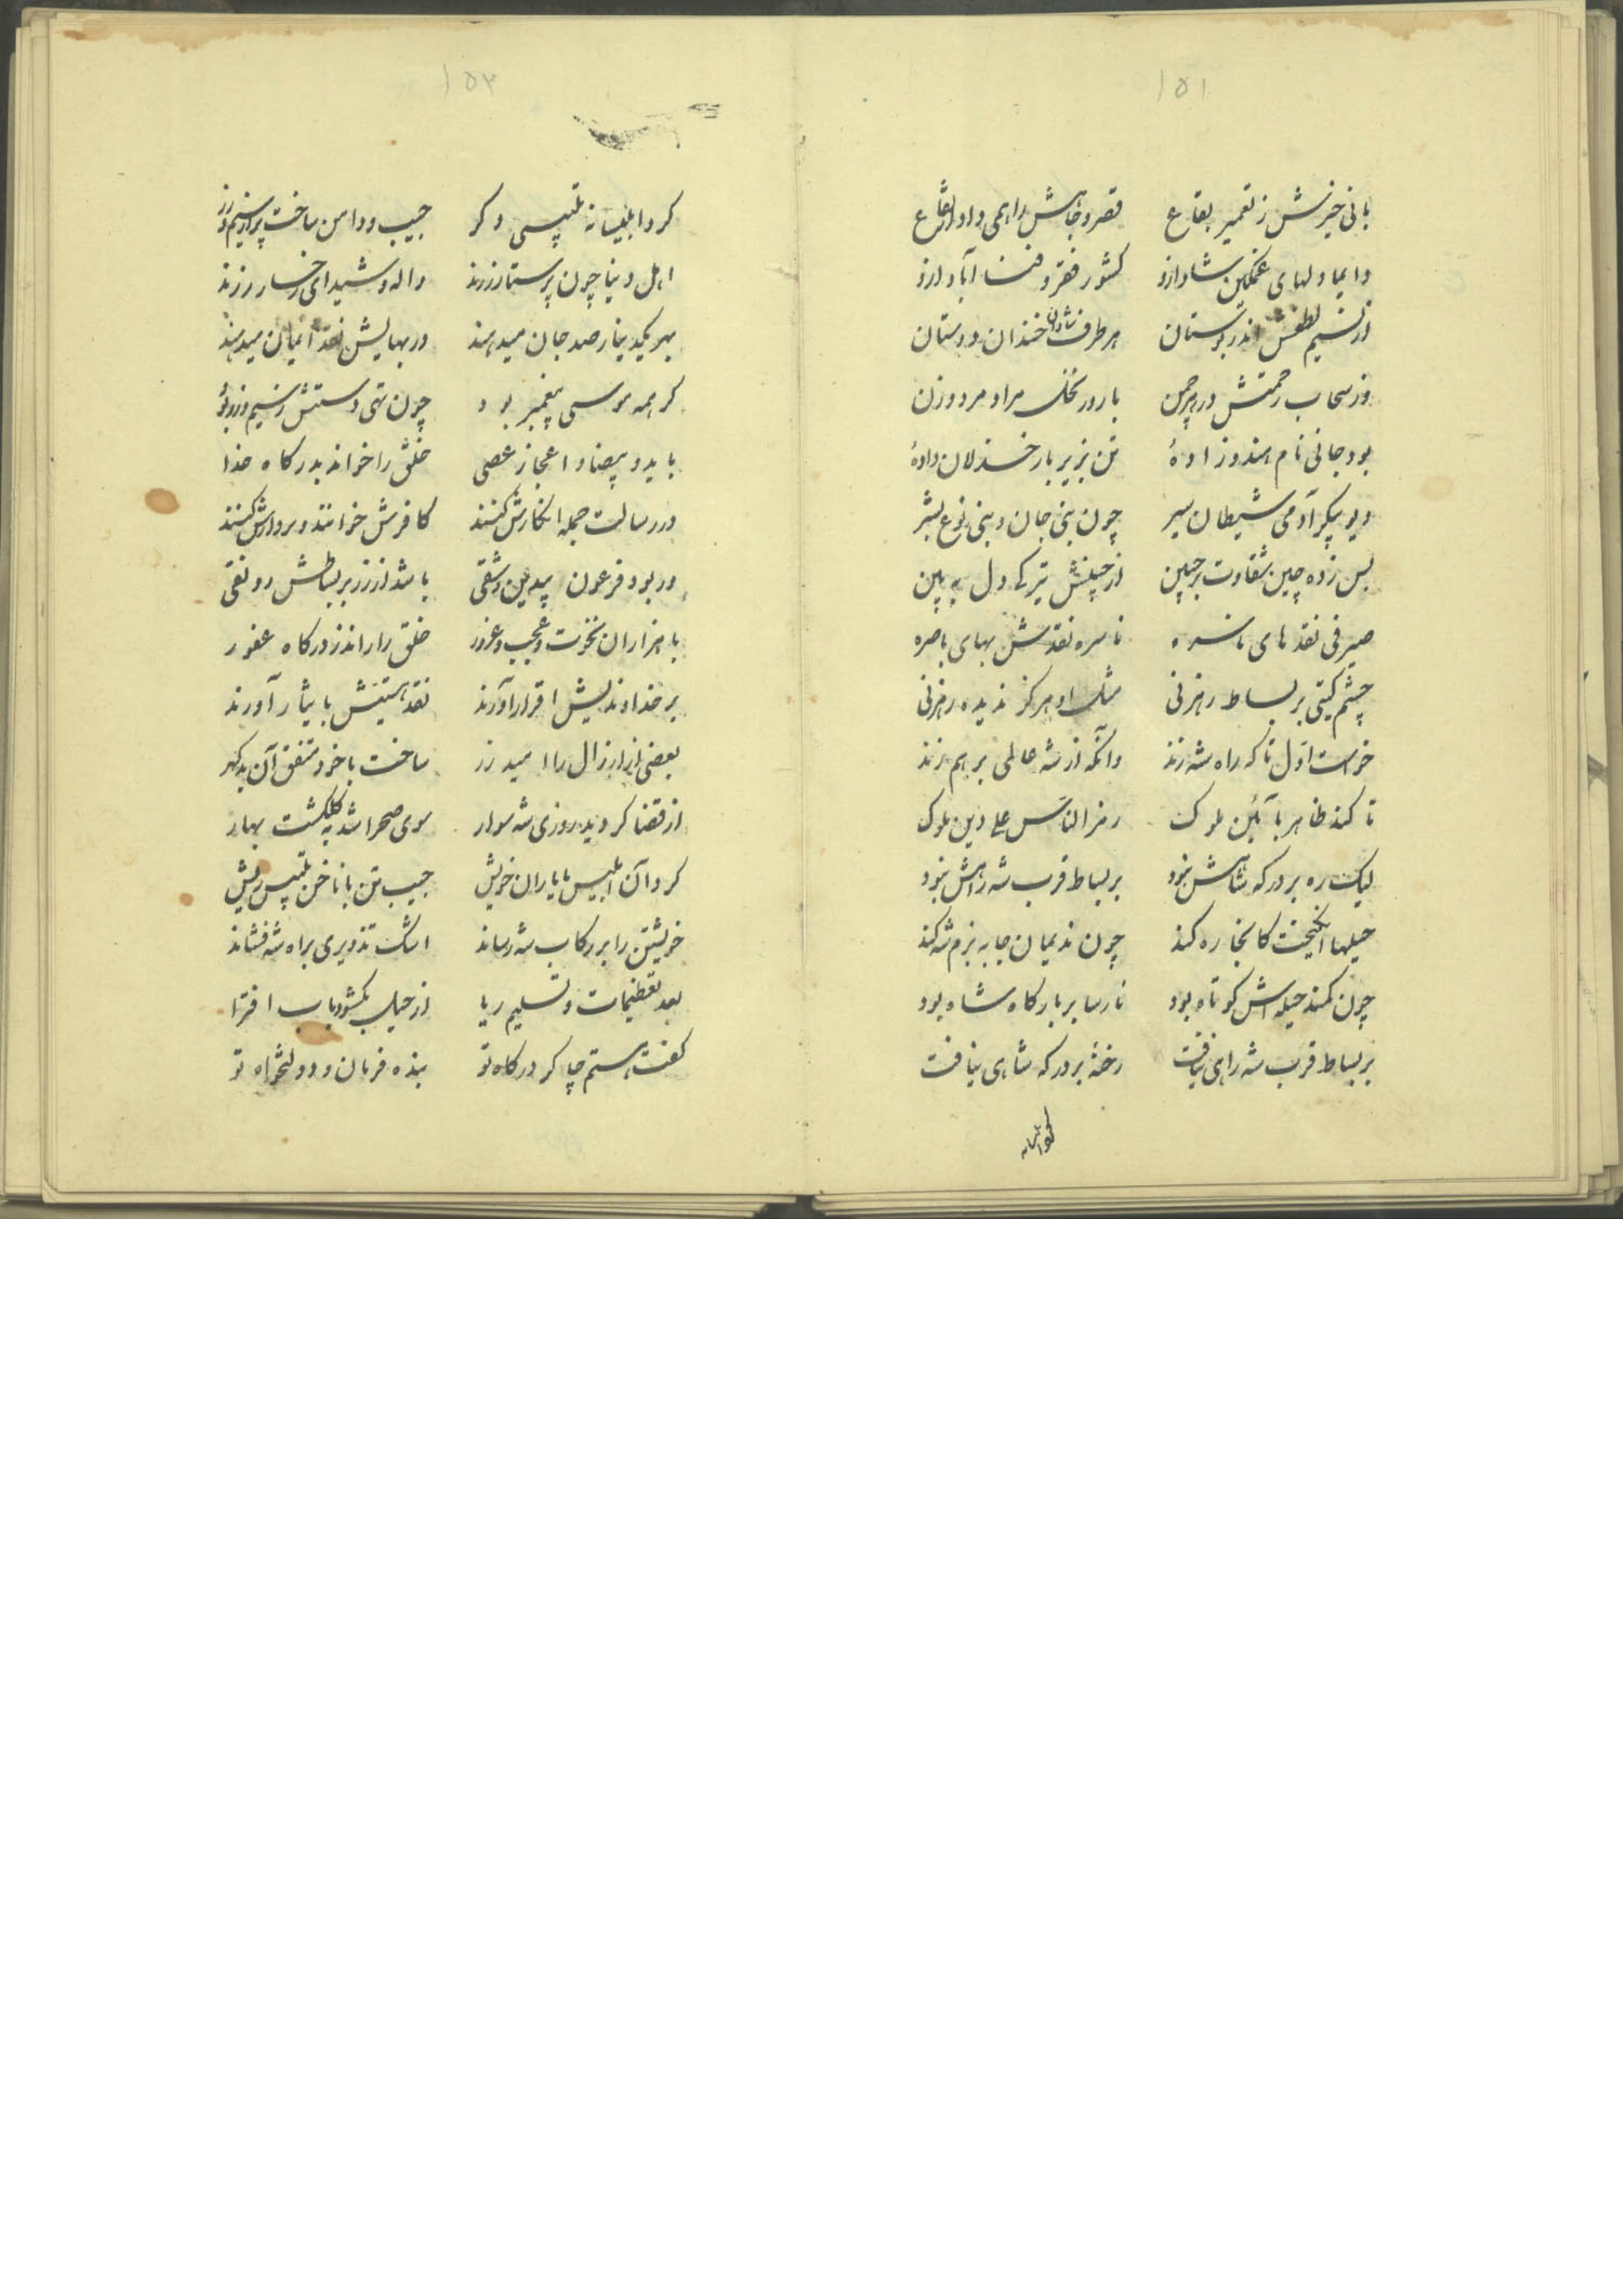 ۱۵۱
بانی خیرش ز تعمیر بقاع قصر و جاهش را همی داد ارتفاع
دایما دلهای غمگین شاد ازو کشور فقر و فنا آباد ازو
از نسیم لطفش اندر بوستان هر طرف شادان خندان دوستان
وز سحاب رحمتش در هر چمن بارور نخل مراد مرد و زن
بود جانی نام هندوزادهٔ تن بزیر بار خذلان دادهٔ
دیو پیکر آدمی شیطان سیر چون بنی جان و بنی نوع بشر
بس زده چین شقاوت بر جبین از جبینش تیرگی دل به بین
صیرفی نقدهای ناسره ناسره نقدش بهای باصره
چشم گیتی بر بساط رهزنی مثل او هرگز ندیده رهزنی
خواست اول تا که راه شه زند وانگه از شه عالمی برهم زند
تا کند ظاهر بآئین ملوک رمز الناس علی دین ملوک
لیک ره بر درگه شاهش نبود بر بساط قرب شه راهش نبود
حیلها انگیخت کانجا ره کند چون ندیمان جا به بزم شه کند
چون کمند حیله اش کوتاه بود نارسا بر بارگاه شاه بود
بر بساط قرب شه راهی نیافت رخنهٔ بر درگه شاهی نیافت
۱۵۲
کرد ابلیسانه تلبیسی دگر جیب و دامن ساخت پر از سیم و زر
اهل دنیا چون پرستار زرند واله و شیدای رخسار زرند
بهر یکدینار صد جان میدهند در بهایش نقد ایمان میدهند
گر همه موسی پیغمبر بود چون تهی دستش ز سیم و زر بود
با ید و بیضا و اعجاز عصی خلق را خواند بدرگاه خدا
در رسالت جمله انکارش کنند کافرش خوانند و بر دارش کنند
ور بود فرعون بیدین و شقی باشد از زر بر بساطش رونقی
با هزاران نخوت و عجب و غرور خلق را راند ز درگاه غفور
بر خداوندیش اقرار آورند نقد هستیش بایثار آورند
بعضی از ارزال را امید زر ساخت با خود متفق آن بدگهر
از قضا گردید روزی شه سوار سوی صحرا شد به گلگشت بهار
کرد آن ابلیس با یاران خویش جیب تن با ناخن تلبیس ریش
خویشتن را بر رکاب شه رساند اشک تزویری براه شه فشاند
بعد تعظیمات و تسلیم ریا از حیل بگشود باب افترا
گفت هستم چاکر درگاه تو بنده فرمان و دولتخواه تو